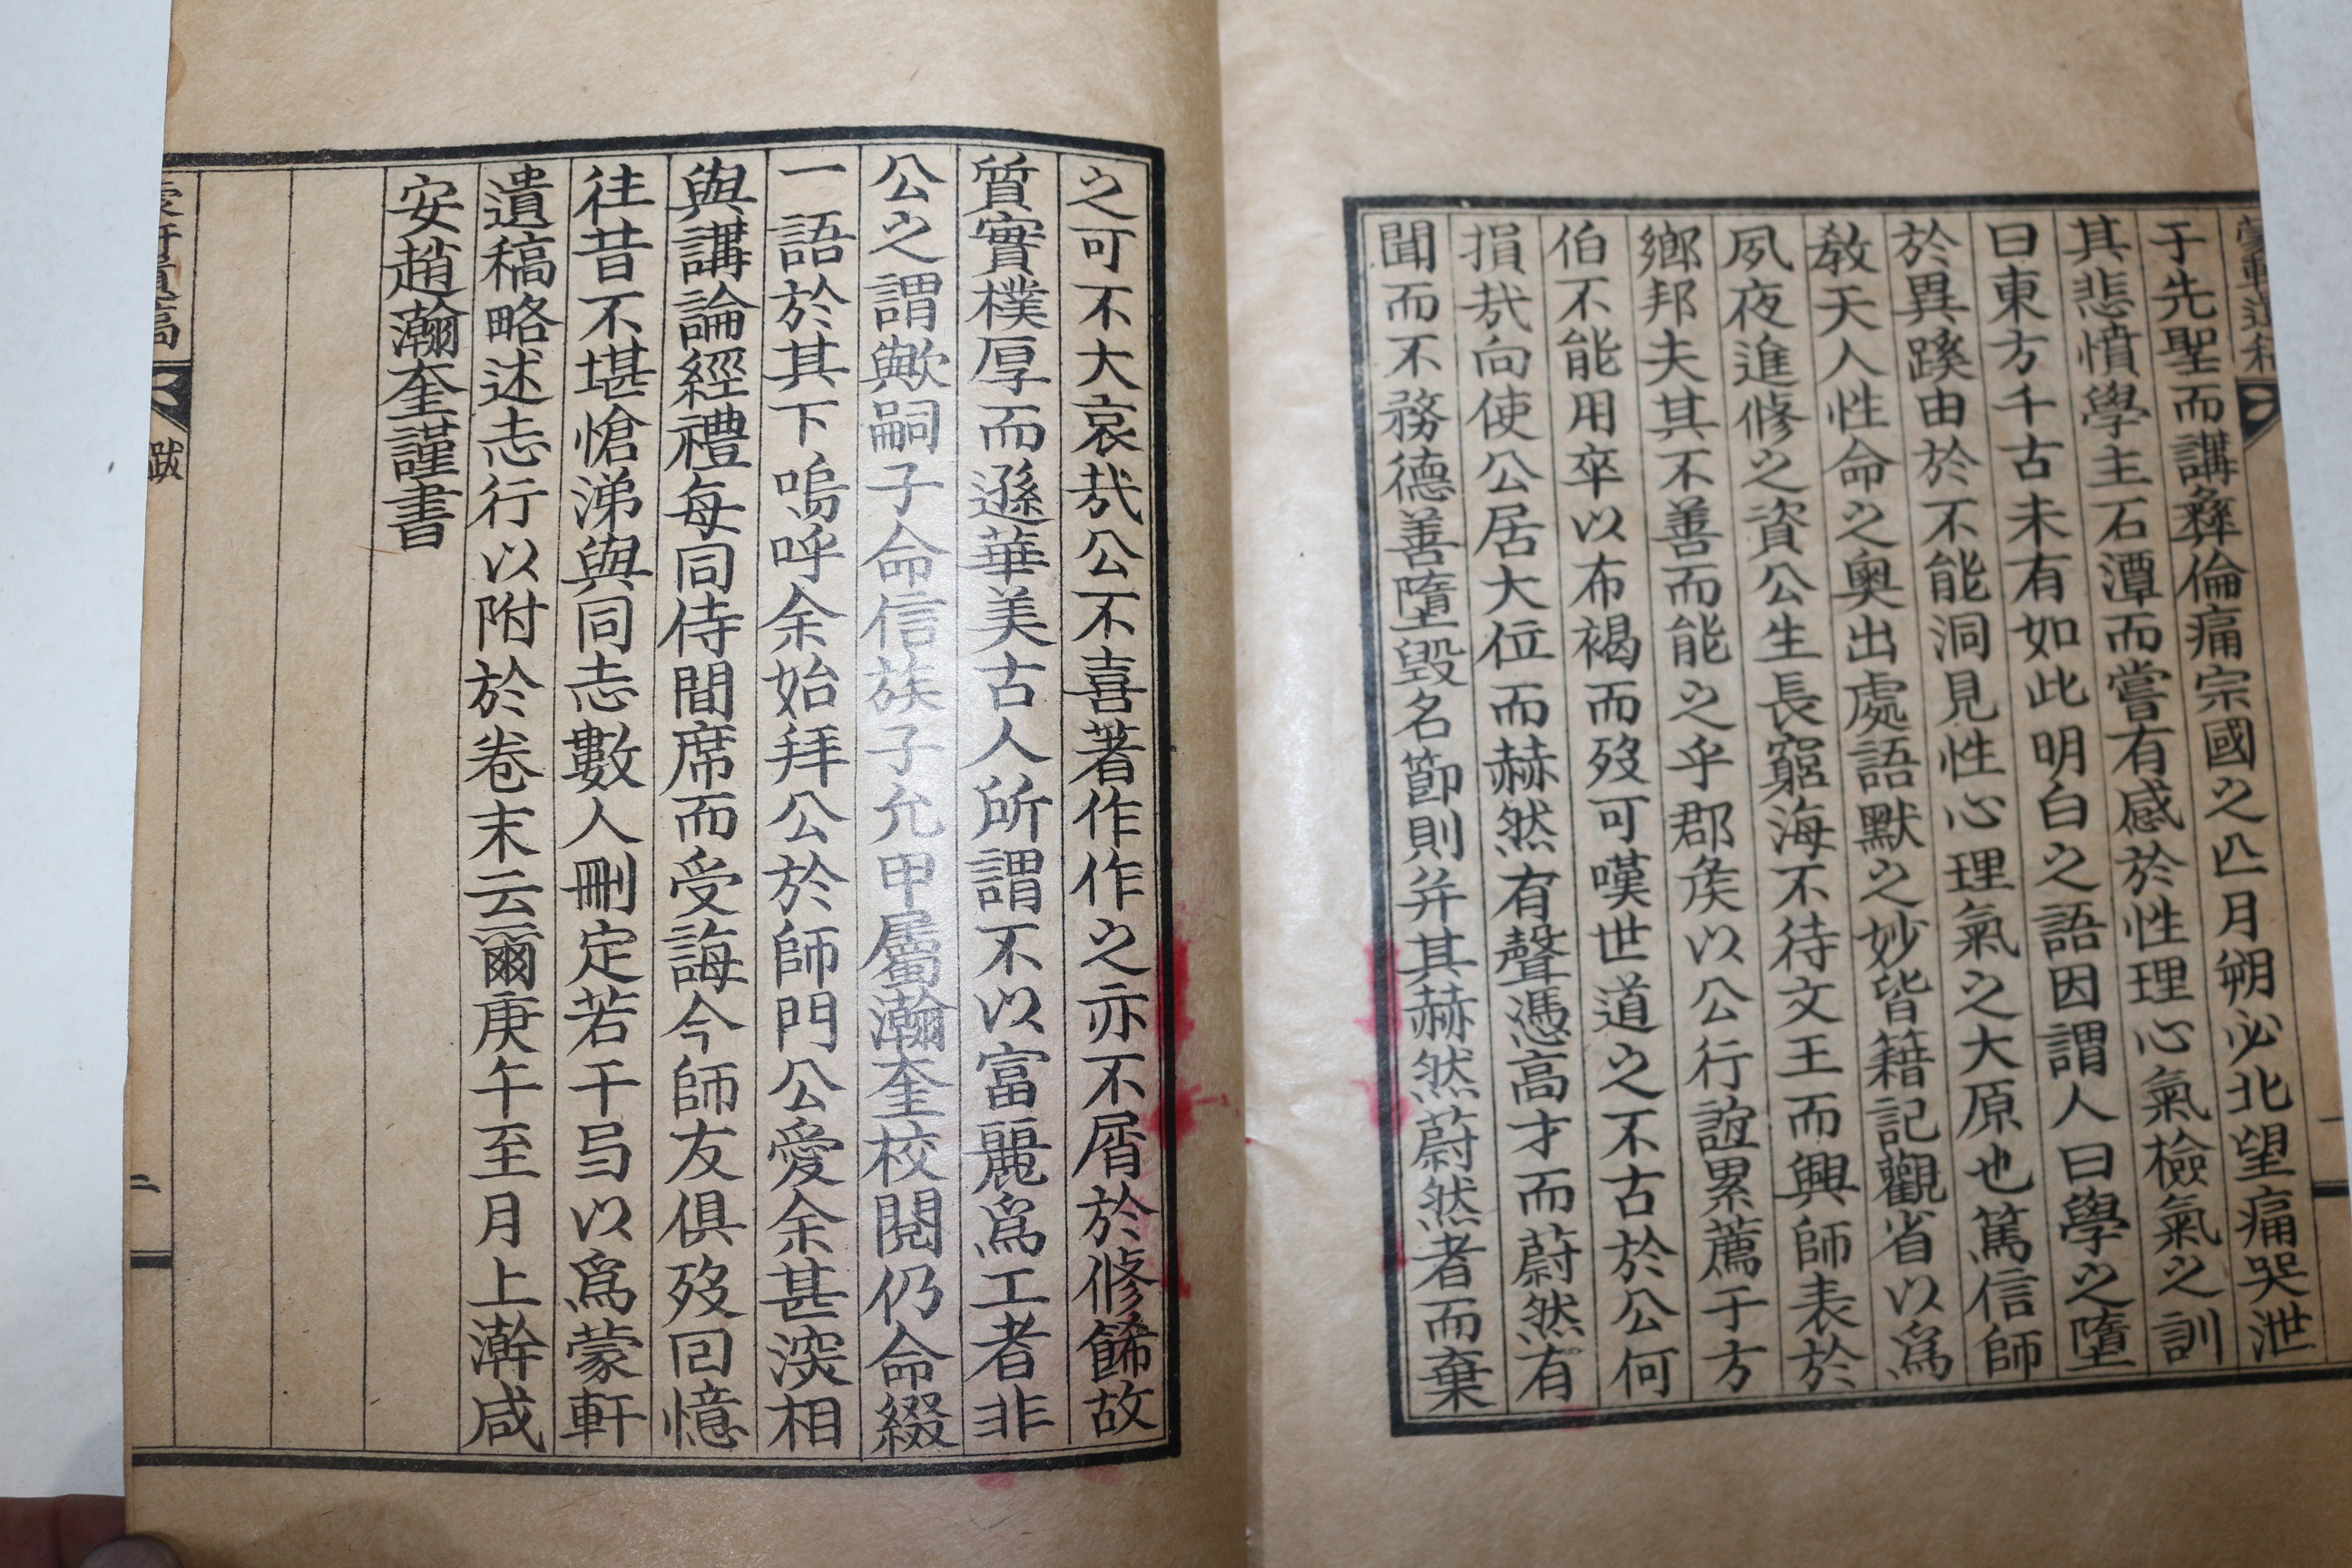 蒙軒遺稿
于先聖而講彜倫痛宗國之亡月朔必北望痛哭泄
其悲憤學主石潭而嘗有感於性理心氣檢氣之訓
曰東方千古未有如此明白之語因謂人曰學之墮
於異蹊由於不能洞見性心理氣之大原也篤信師
敎天人性命之奧出處語默之妙皆籍記觀省以爲
夙夜進修之資公生長窮海不待文王而興師表於
鄕邦夫其不善而能之乎郡矦以公行誼累薦于方
伯不能用卒以布褐而歿可嘆世道之不古於公何
損㢤向使公居大位而赫然有聲憑高才而蔚然有
聞而不務德善墮毁名節則并其赫然蔚然者而棄
之可不大哀㢤公不喜著作作之亦不屑於修餙故
質實樸厚而遜華美古人所謂不以富麗爲工者非
公之謂歟嗣子命信族子允甲屬瀚奎校閱仍命綴
一語於其下嗚呼余始拜公於師門公愛余甚深相
與講論經禮每同侍間席而受誨今師友俱歿回憶
往昔不堪愴涕與同志數人刪定若干弓以爲蒙軒
遺稿略述志行以附於卷末云爾庚午至月上澣咸
安趙瀚奎謹書
蒙軒遺稿 跋 二